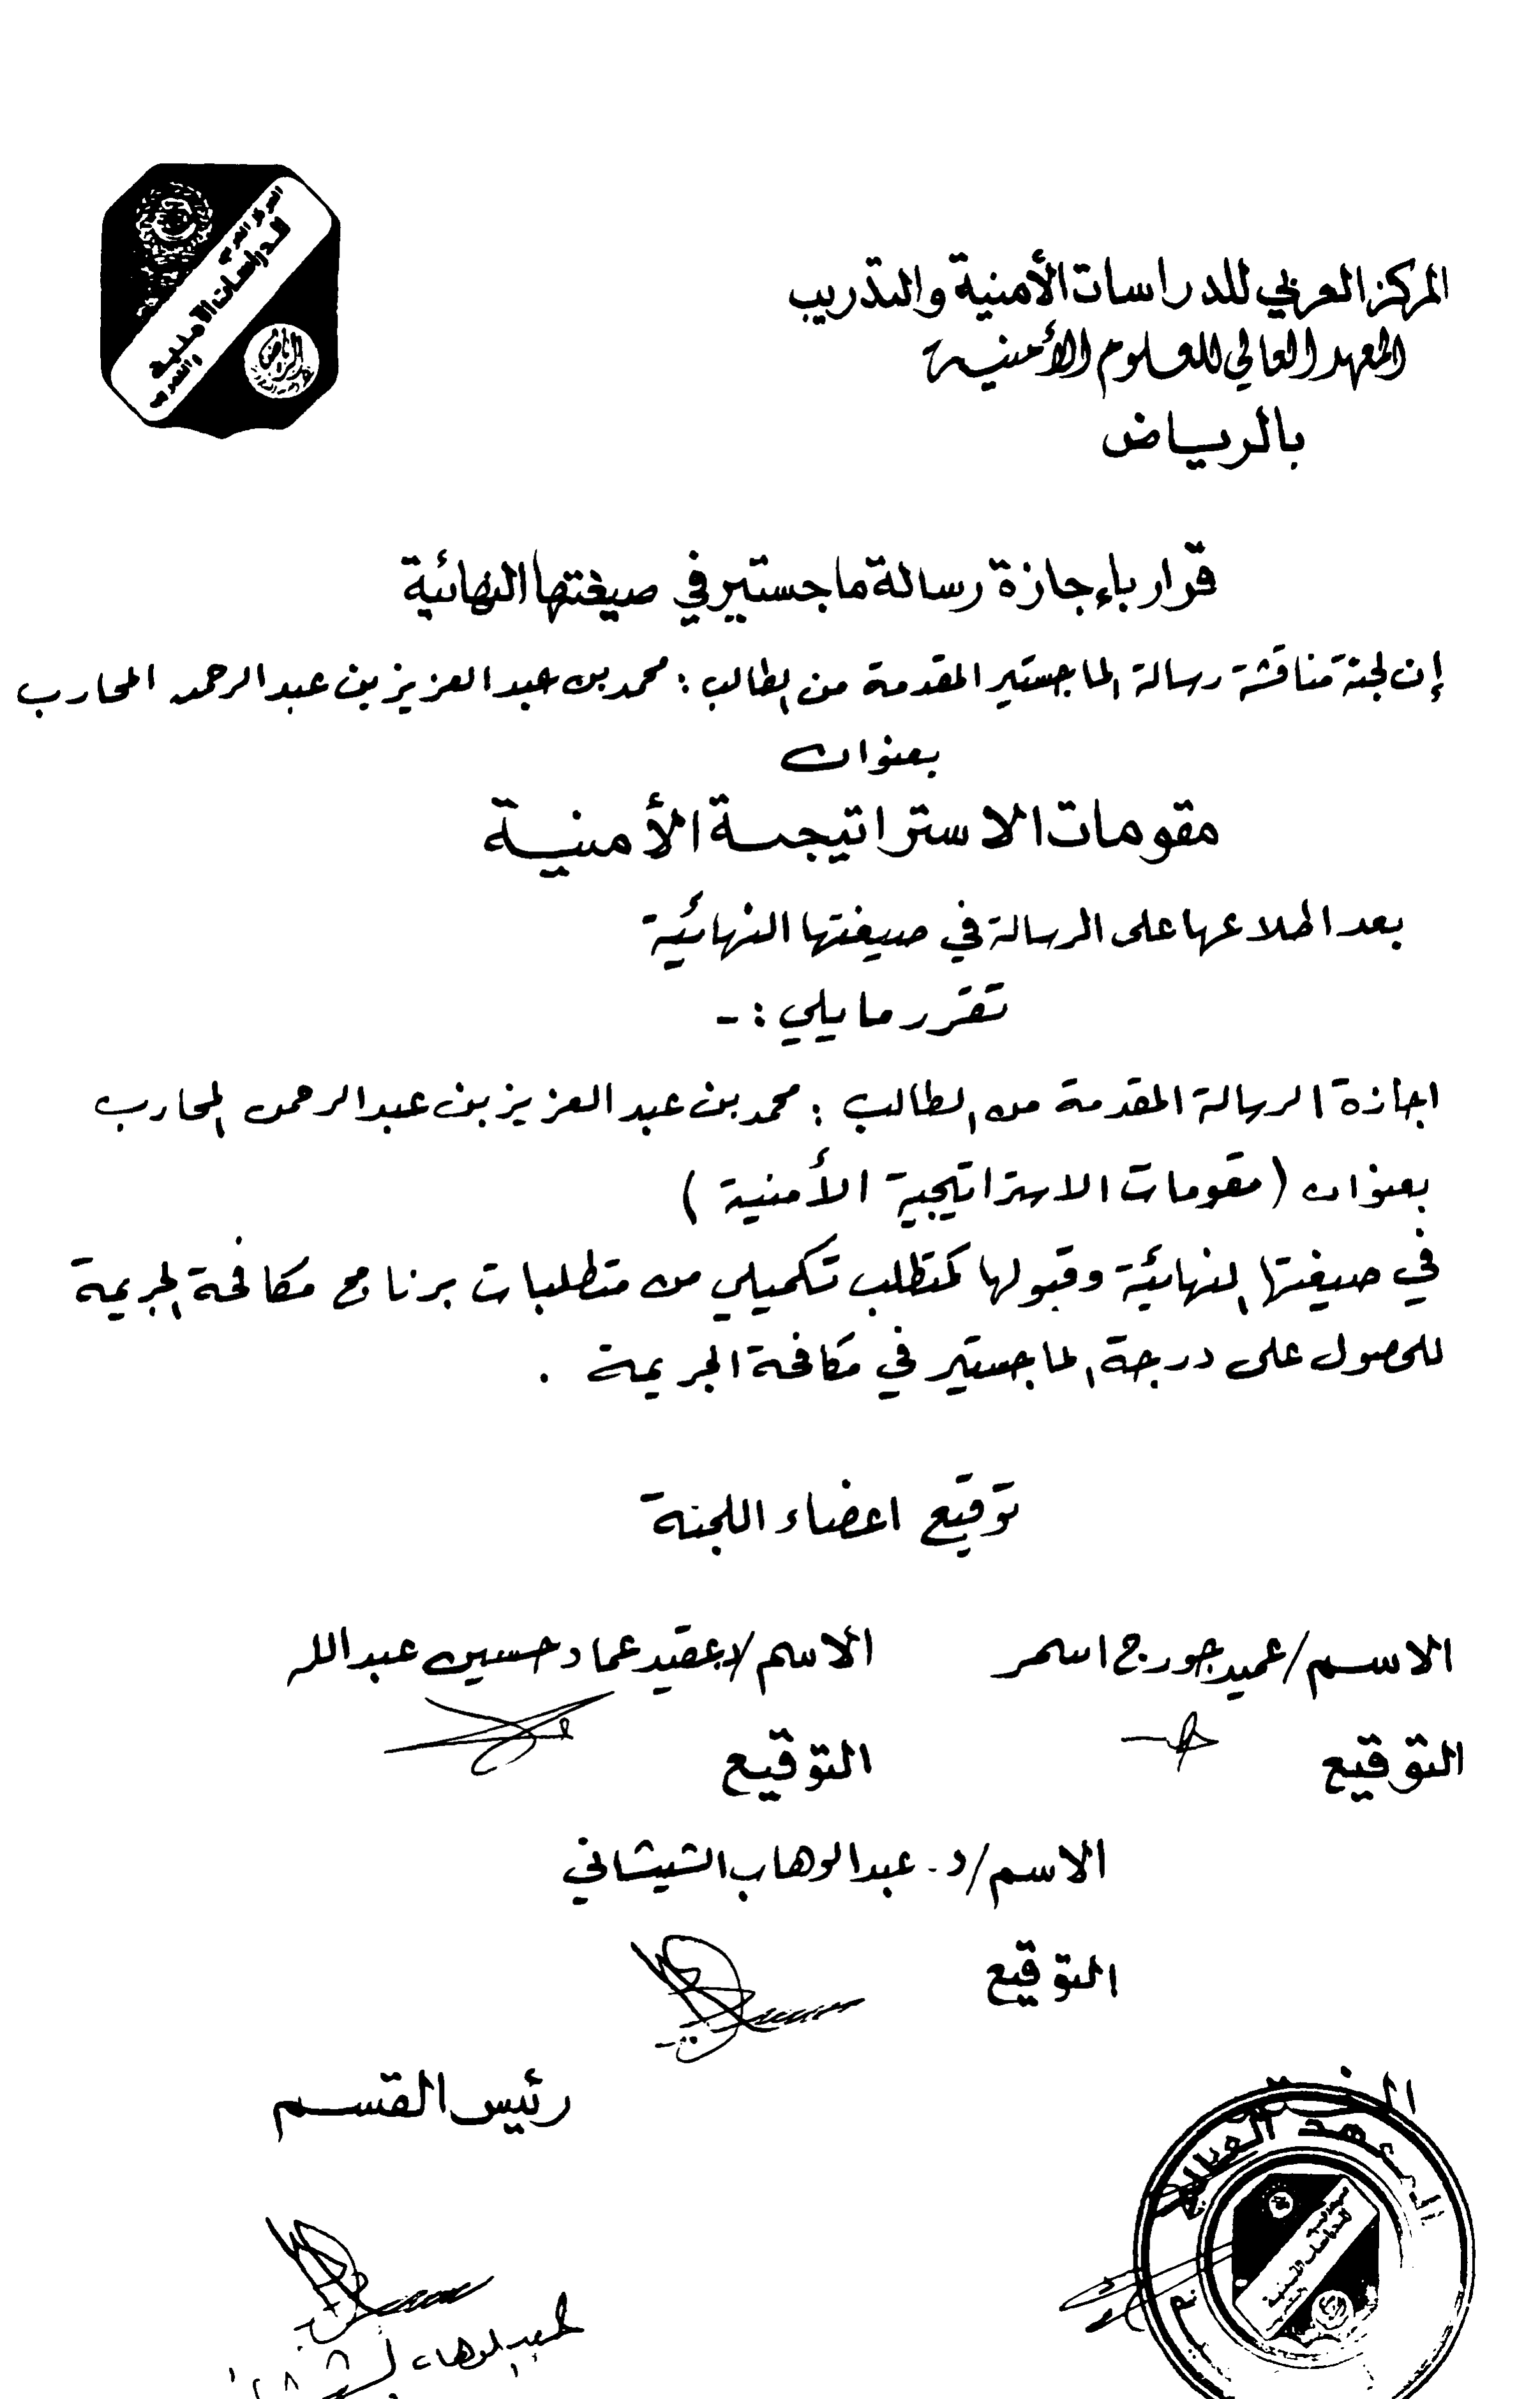 المركز العربي للدراسات الأمنية والتدريب
المعهد العالي للعلوم الأمنية
بالرياض
المركز العربي
للدراسات الأمنية
والتدريب
الرياض
قرار بإجازة رسالة ماجستير في صيغتها النهائية
إن لجنة مناقشة رسالة الماجستير المقدمة من الطالب : محمد بن عبد العزيز بن عبد الرحمن المحارب
بعنوان
مقومات الاستراتيجية الأمنية
بعد اطلاعها على الرسالة في صيغتها النهائية
تقرر ما يلي : -
اجازة الرسالة المقدمة من الطالب : محمد بن عبد العزيز بن عبد الرحمن المحارب
بعنوان ( مقومات الاستراتيجية الأمنية )
في صيغتها النهائية وقبولها كمتطلب تكميلي من متطلبات برنامج مكافحة الجريمة
للحصول على درجة الماجستير في مكافحة الجريمة .
توقيع اعضاء اللجنة
الاسم / عميد جورج اسمر
الاسم / عقيد عماد حسين عبدالله
التوقيع
التوقيع
الاسم / د. عبدالوهاب الشيشاني
التوقيع
رئيس القسم
المعهد العالي
عبدالوهاب